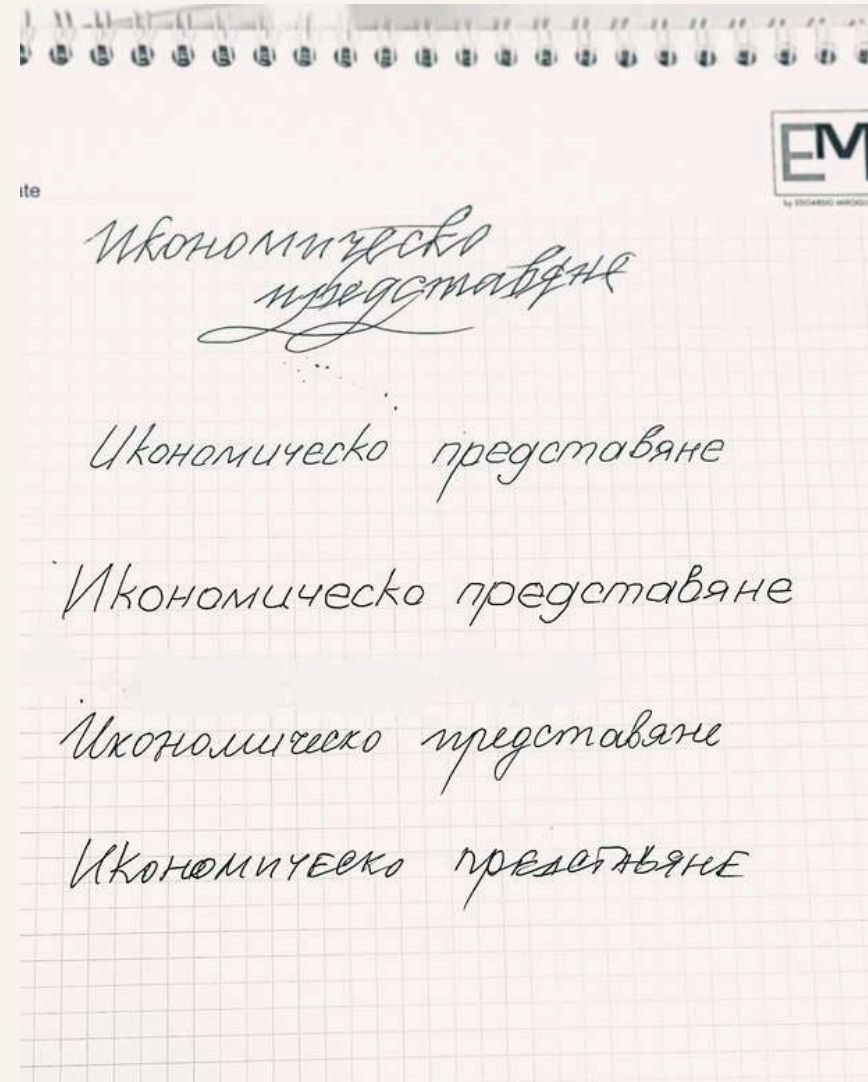 ate
EM
by EDOARDO MIROGLIO
Икономическо
представяне
Икономическо представяне
Икономическо представяне
Икономическо представяне
Икономическо представяне